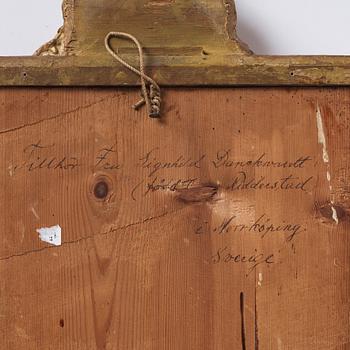 Tillhör Fru Signhild Danckwardt
(född Ridderstad
i Norrköping.
Sverige